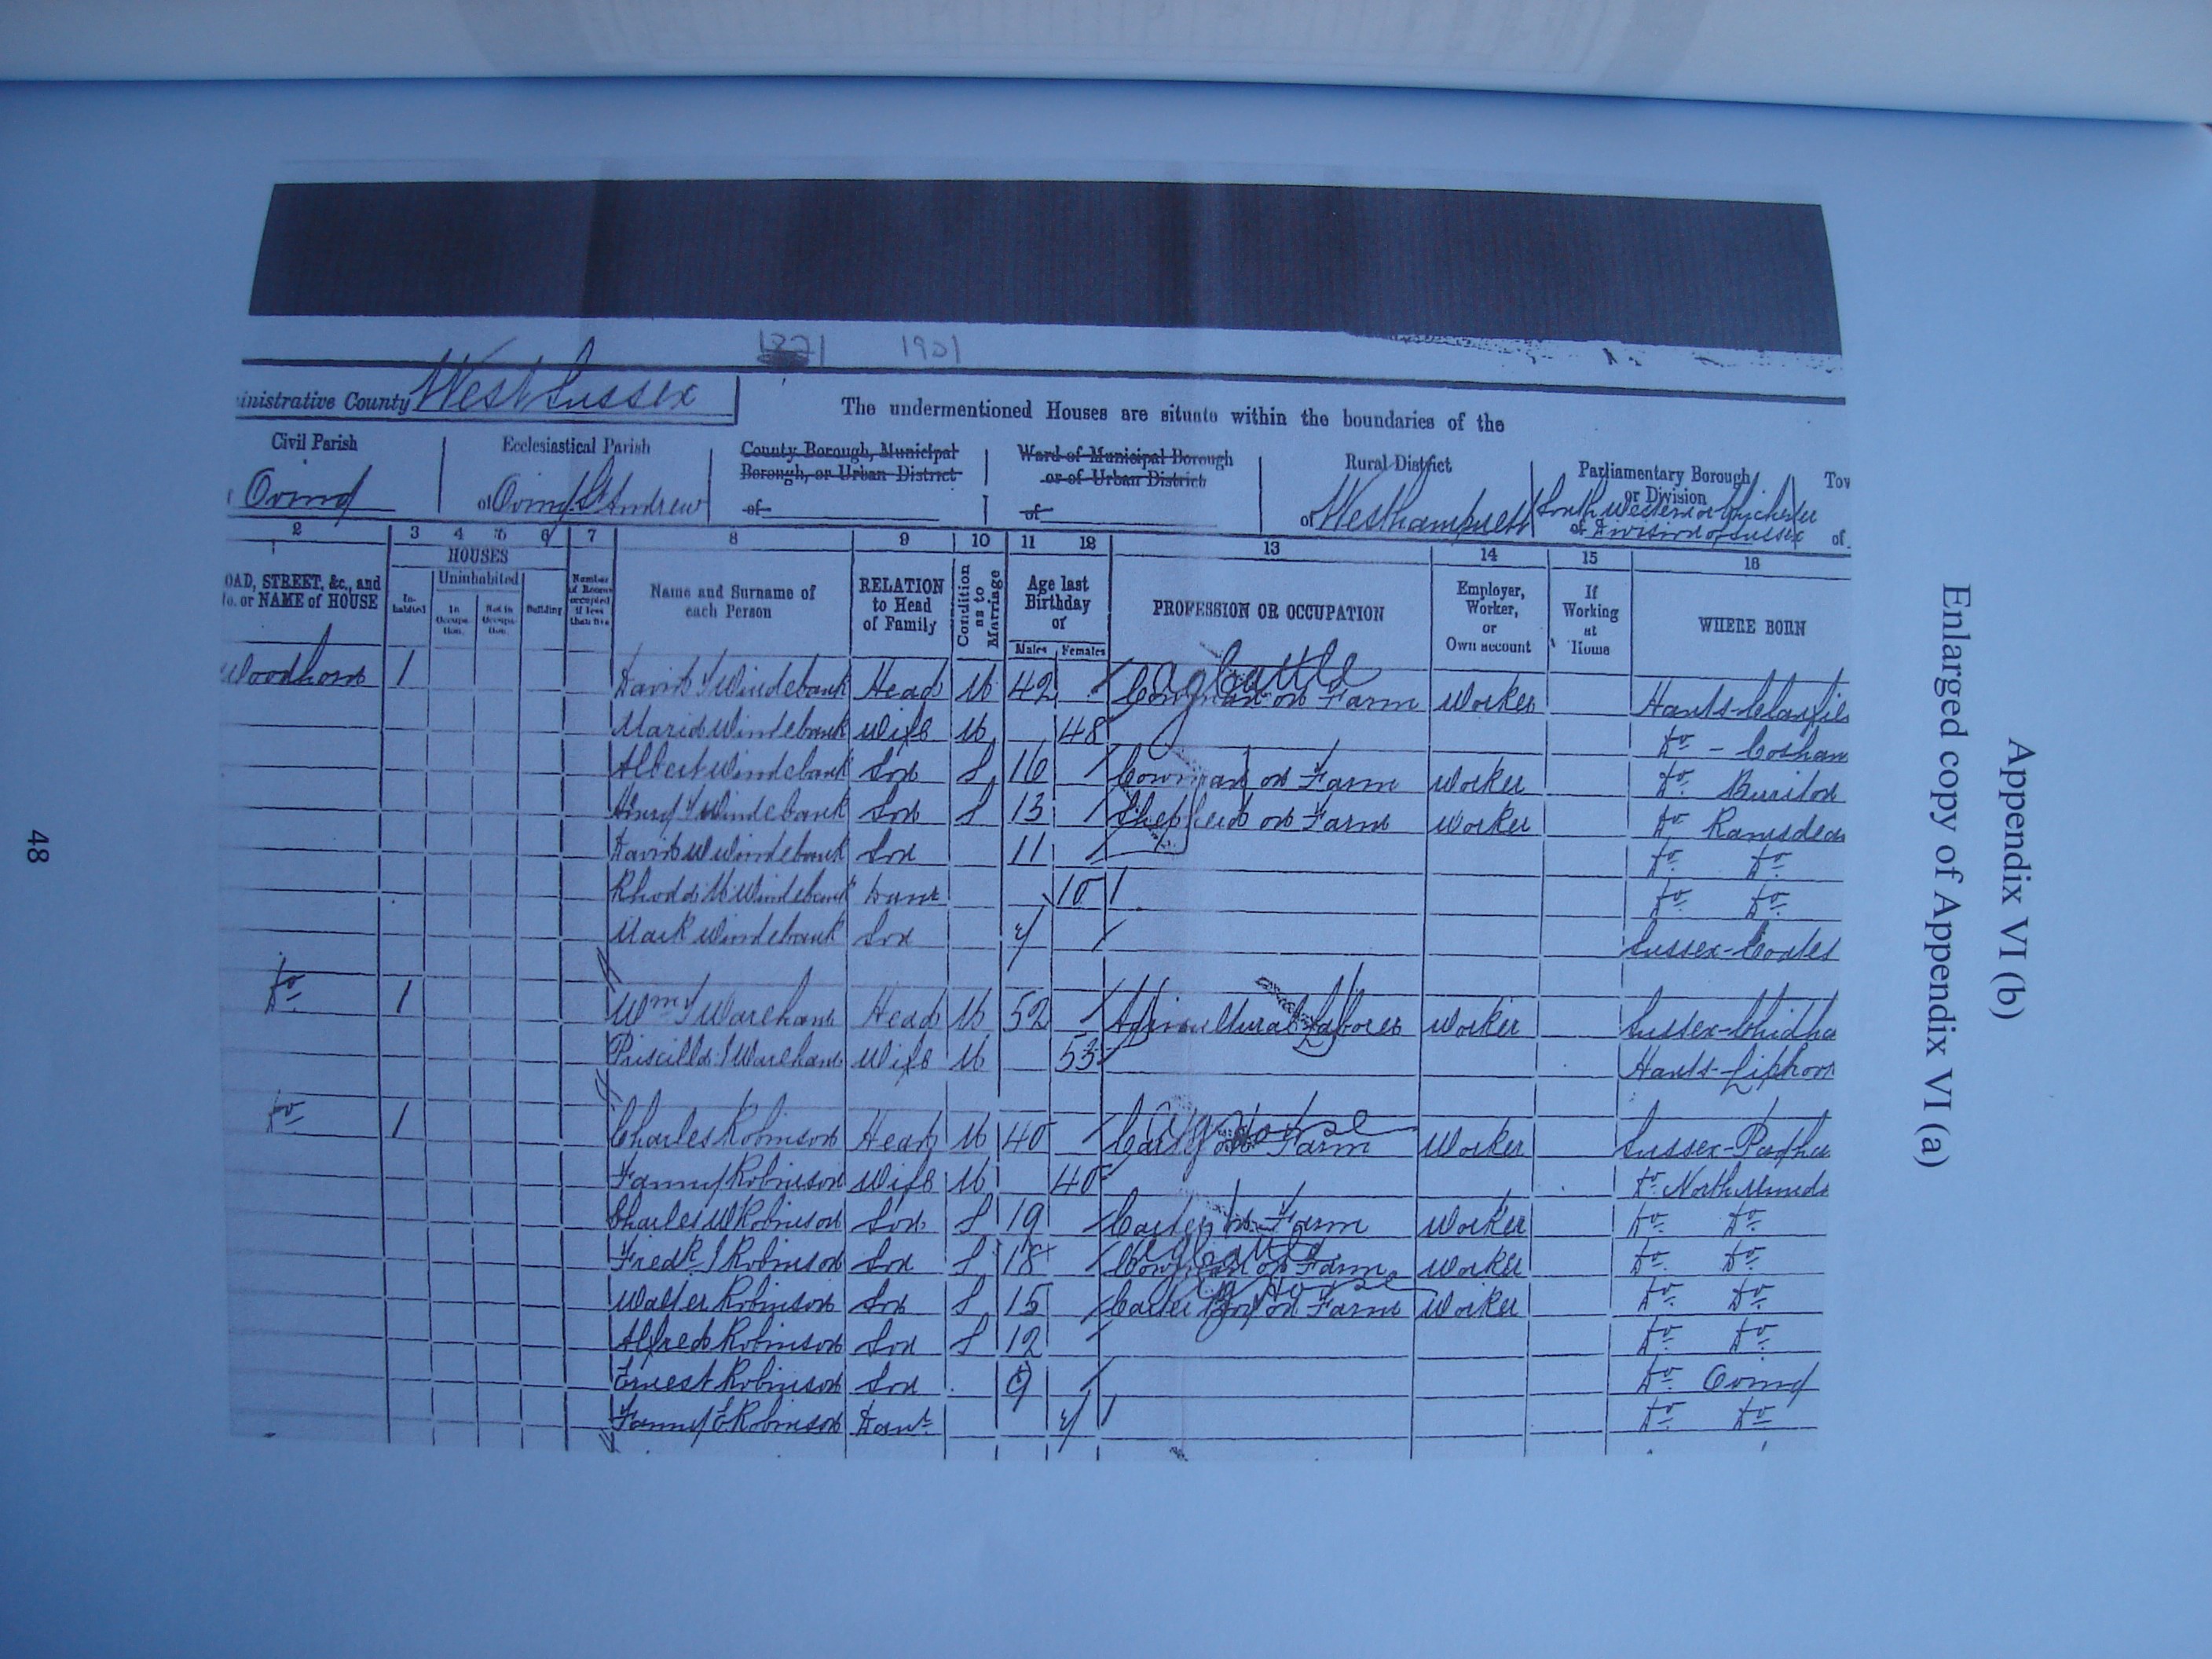 Appendix VI (b)
Enlarged copy of Appendix VI (a)
1901
inistrative County West Sussex
The undermentioned Houses are situate within the boundaries of the
Civil Parish
Ecclesiastical Parish
County Borough, Municipal Borough, or Urban District
Ward of Municipal Borough or of Urban District
Rural District
Parliamentary Borough or Division
Tow
Oving
of Oving St Andrew
of
of
of Westhampnett
South Western or Chichester
of Division of Sussex
of
2 3 4 5 6 7 8 9 10 11 12 13 14 15 16
OAD, STREET, &c., and No. or NAME of HOUSE
HOUSES
Inhabited
Uninhabited
In Occupation.
Not in Occupation.
Building
Number of Rooms occupied if less than five
Name and Surname of each Person
RELATION to Head of Family
Condition as to Marriage
Age last Birthday of
Males
Females
PROFESSION OR OCCUPATION
Employer, Worker, or Own account
If Working at Home
WHERE BORN
1 David Windebank Head M 42 Cowman on Farm Worker Hants
ag Cattle
Windebank Wife M 48 Do - Cosham
Albert Windebank Son S 16 Cowman on Farm Worker Do Buriton
Windebank Son S 13 Shepherd on Farm Worker Do
David W Windebank Son 11 Do Do
Rhoda M Windebank Daur 10 Do Do
Mark Windebank Son Sussex
Do 1 Wm Wareham Head M 52 Agricultural Laborer Worker Sussex-Chidha
Priscilla Wareham Wife M 53 Hants-Liphoo
Do 1 Charles Robinson Head M 40 Carter on Farm Worker Sussex
ag Horse
Fanny Robinson Wife M 40 Do North
Charles W Robinson Son S 19 Carter on Farm Worker Do Do
Fredk J Robinson Son S 18 Cowman on Farm Worker Do Do
ag Cattle
Walter Robinson Son S 15 Carter Boy on Farm Worker Do Do
ag Horse
Alfred Robinson Son S 12 Do Do
Ernest Robinson Son 9 Do Oving
Fanny E Robinson Daur Do Do
48